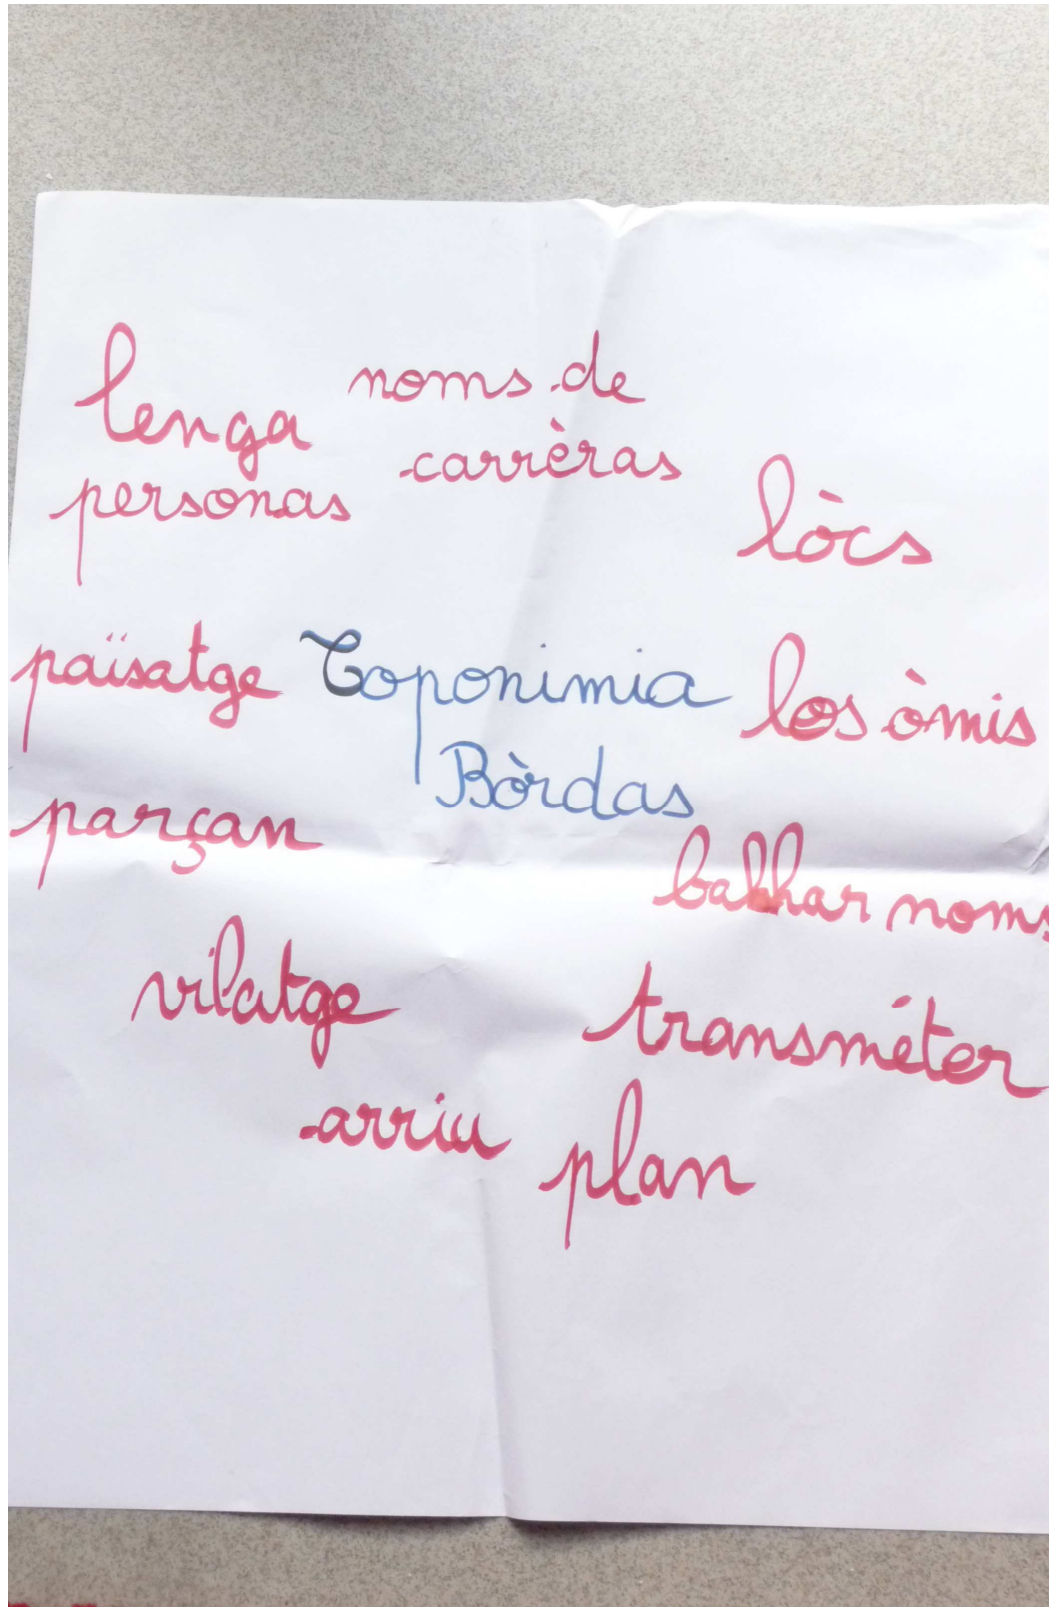 lenga
noms de
carrèras
personas
lòcs
païsatge
Toponimia
Bòrdas
los òmis
parçan
balhar noms
vilatge
transméter
arriu
plan